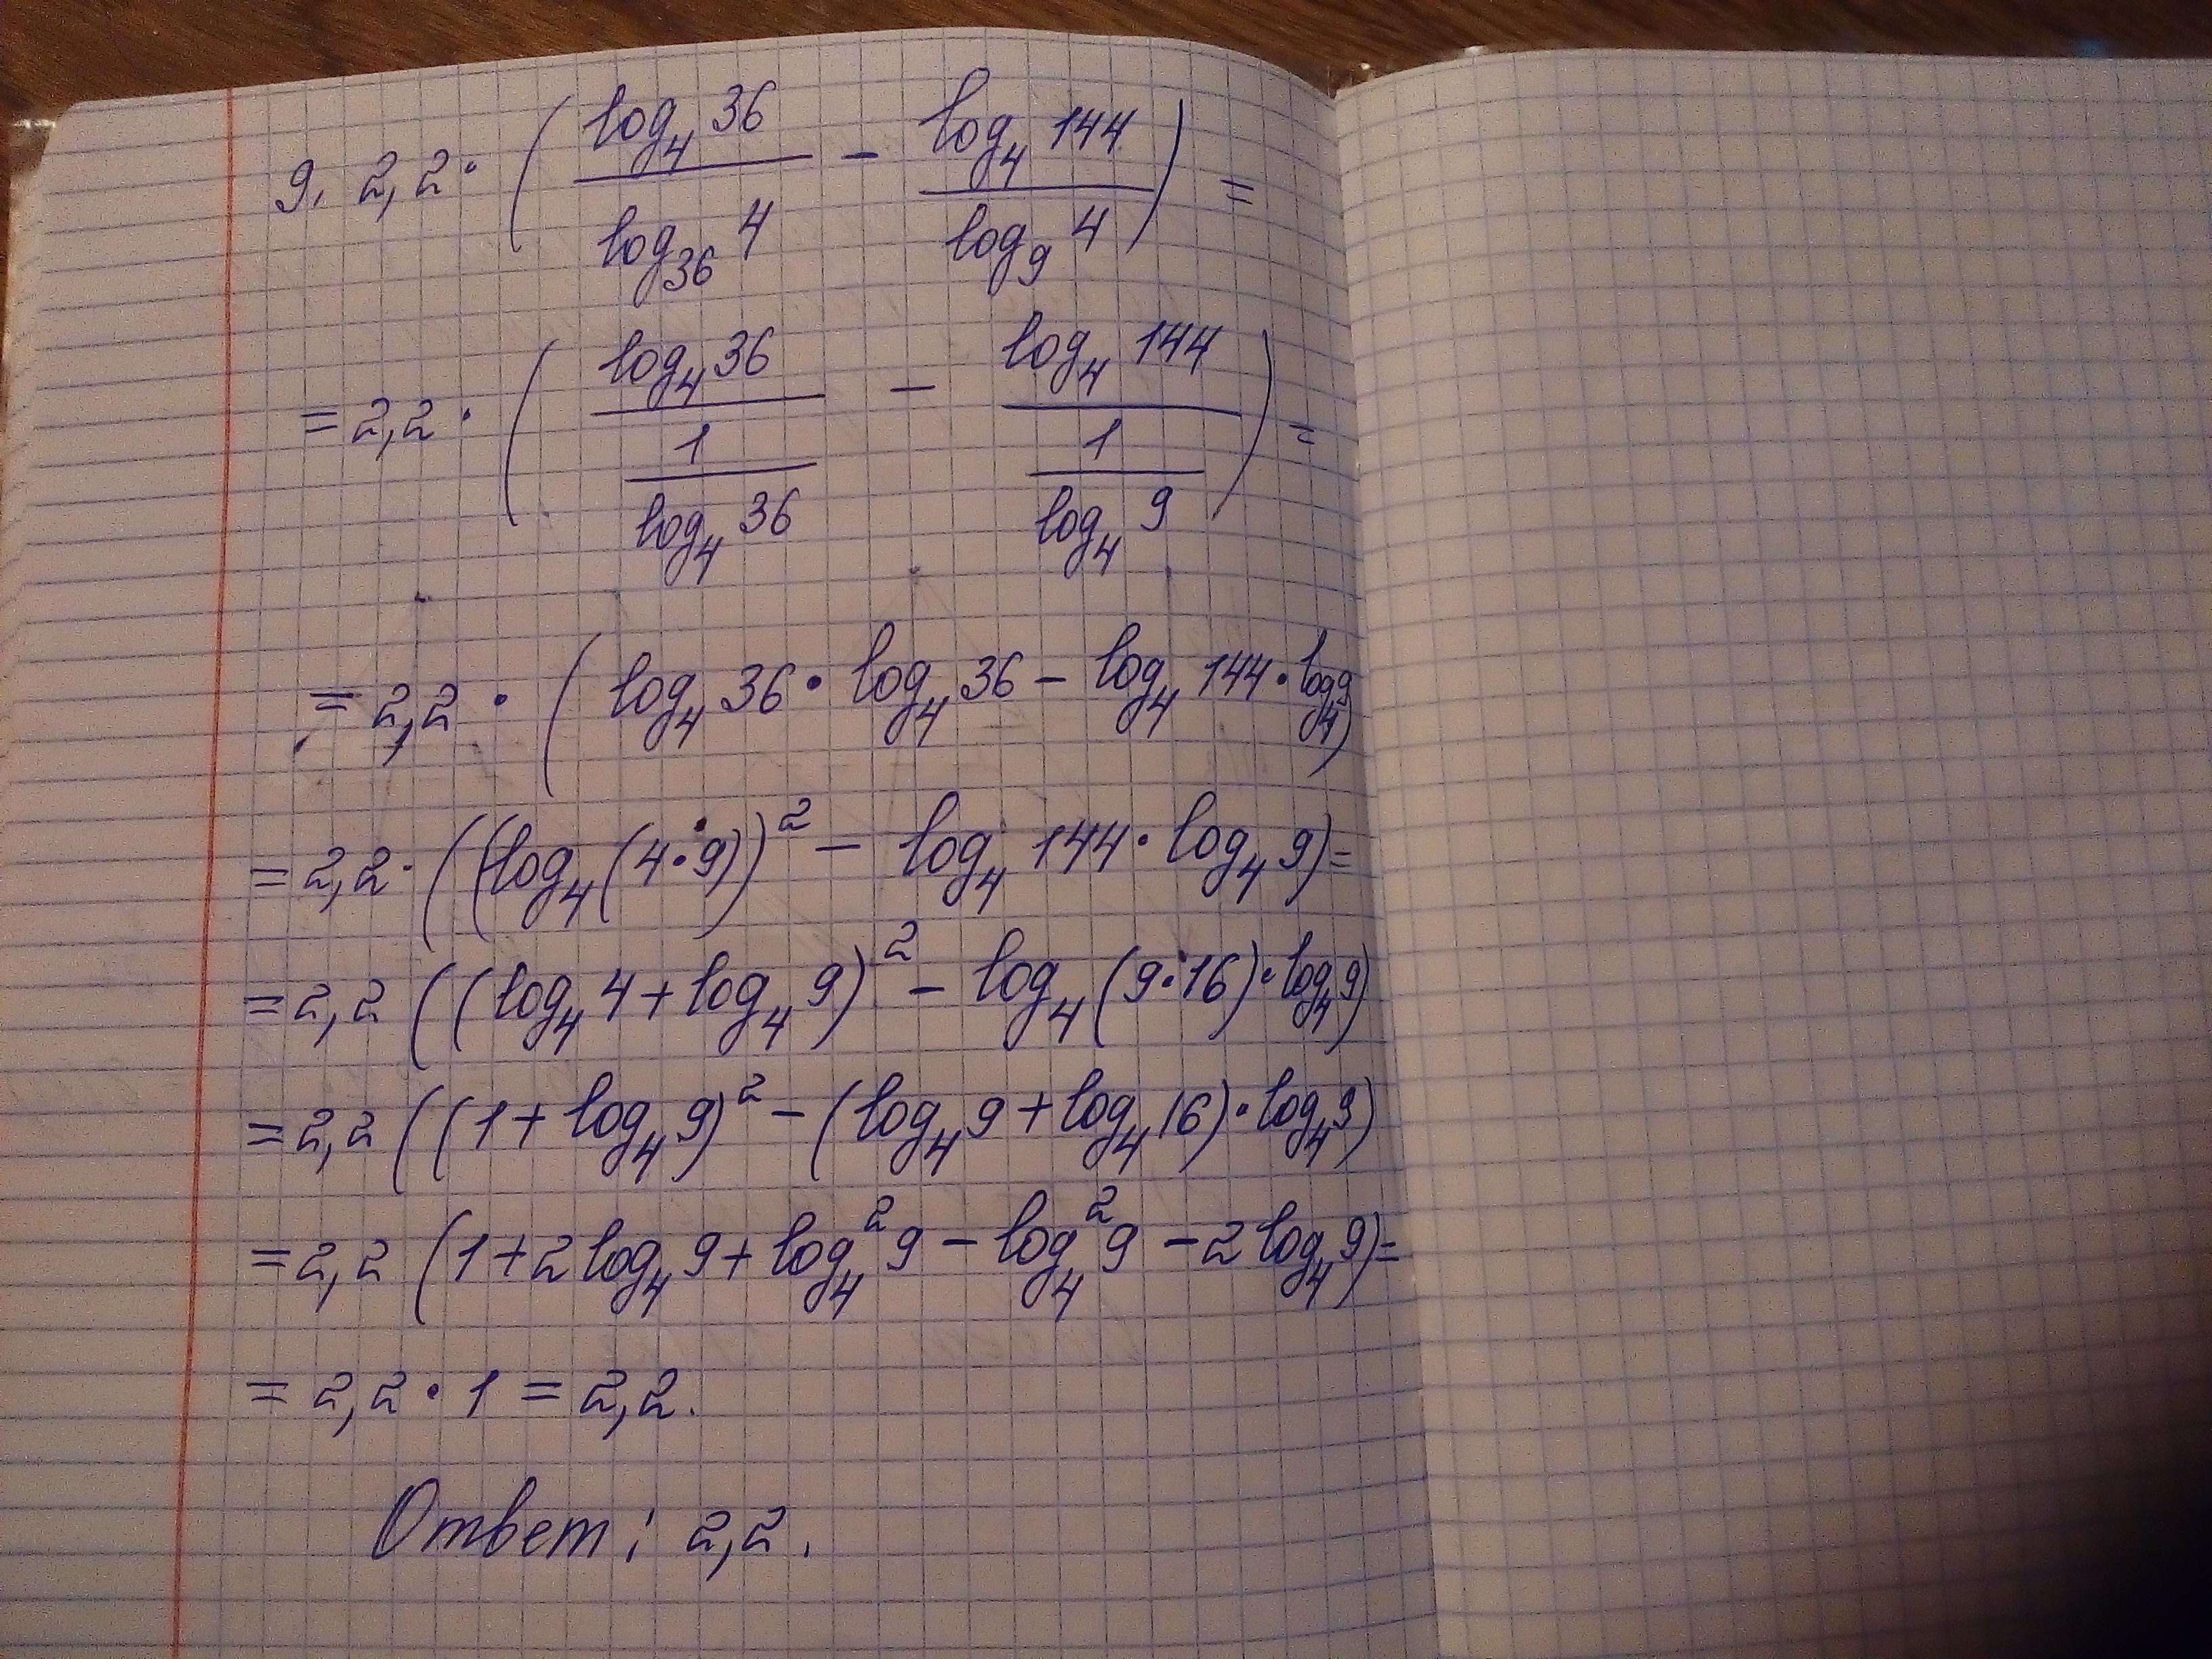 9. 2,2 · ( log₄ 36 / log₃₆ 4 − log₄ 144 / log₉ 4 ) =
= 2,2 · ( log₄ 36 / (1 / log₄ 36) − log₄ 144 / (1 / log₄ 9) ) =
= 2,2 · ( log₄ 36 · log₄ 36 − log₄ 144 · log₄ 9)
= 2,2 · ((log₄ (4 · 9))² − log₄ 144 · log₄ 9) =
= 2,2 ((log₄ 4 + log₄ 9)² − log₄ (9 · 16) · log₄ 9)
= 2,2 ((1 + log₄ 9)² − (log₄ 9 + log₄ 16) · log₄ 9)
= 2,2 (1 + 2 log₄ 9 + log₄² 9 − log₄² 9 − 2 log₄ 9) =
= 2,2 · 1 = 2,2.
Ответ: 2,2.